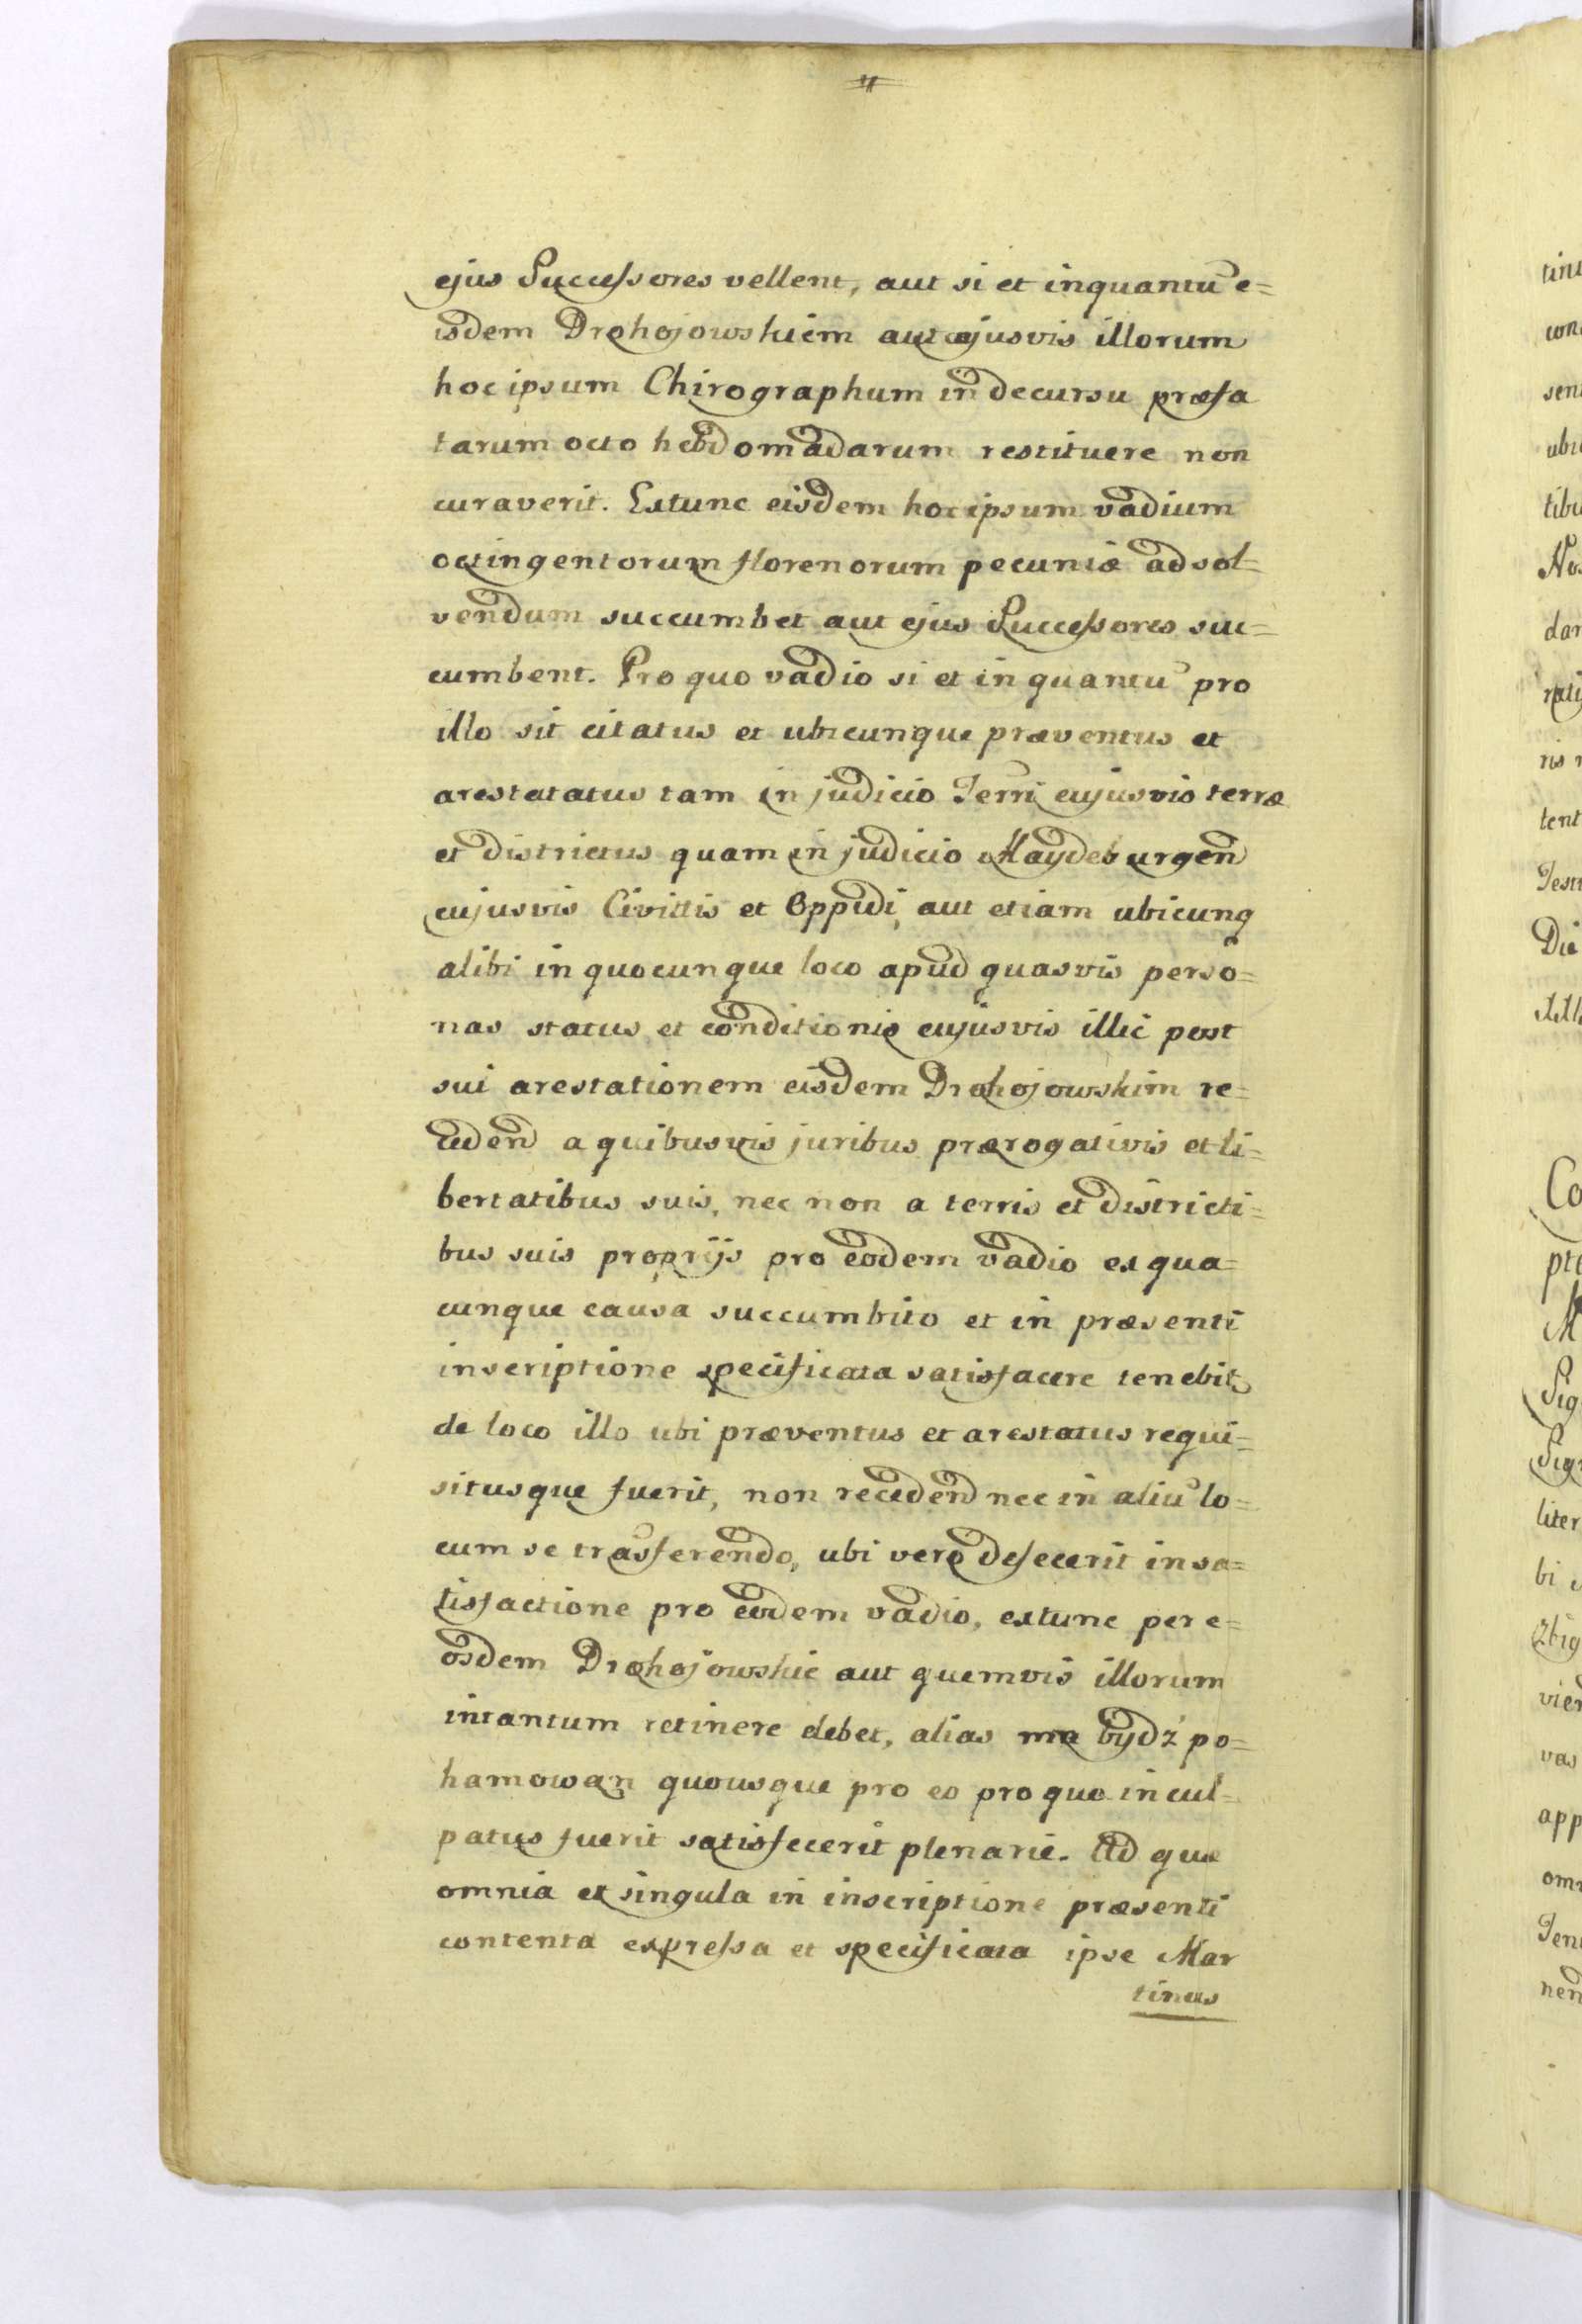 ejus Successores vellent, aut si et inquantū e=
isdem Drohojowskiem aut cujusvis illorum
hoc ipsum Chirographum in decursu præfa
tarum octo hebdomadarum restituere non
curaverit. Extunc eisdem hoc ipsum vadium
octingentorum florenorum pecuniæ ad sol=
vendum succumbet aut ejus Successores suc=
cumbent. Pro quo vadio si et in quantū pro
illo sit citatus et ubicunque præventus et
arestatatus tam in judicio Terrī cujusvis terræ
et districtus quam in judicio Maydeburgen
cujusvis Civittis et Oppidi, aut etiam ubicunq
alibi in quocunque loco apud quasvis perso=
nas status et conditionis cujusvis illic post
sui arestationem eisdem Drohojowskim re=
ceden a quibusvis juribus prærogativis et li=
bertatibus suis, nec non a terris et districti=
bus suis proprijs pro eodem vadio ex qua=
cunque causa succumbito et in præsenti
inscriptione specificata satisfacere tenebit
de loco illo ubi præventus et arestatus requi=
situsque fuerit, non receden nec in aliū lo=
cum se trāsferendo, ubi vero defecerit in sa=
tisfactione pro eodem vadio, extunc per e=
osdem Drohojowskie aut quemvis illorum
intantum retinere debet, alias ma bydź po=
hamowan quousque pro eo pro quo incul=
patus fuerit satisfecerit plenarie. Ad quæ
omnia et singula in inscriptione præsenti
contenta expressa et specificata ipse Mar
tinus
Co